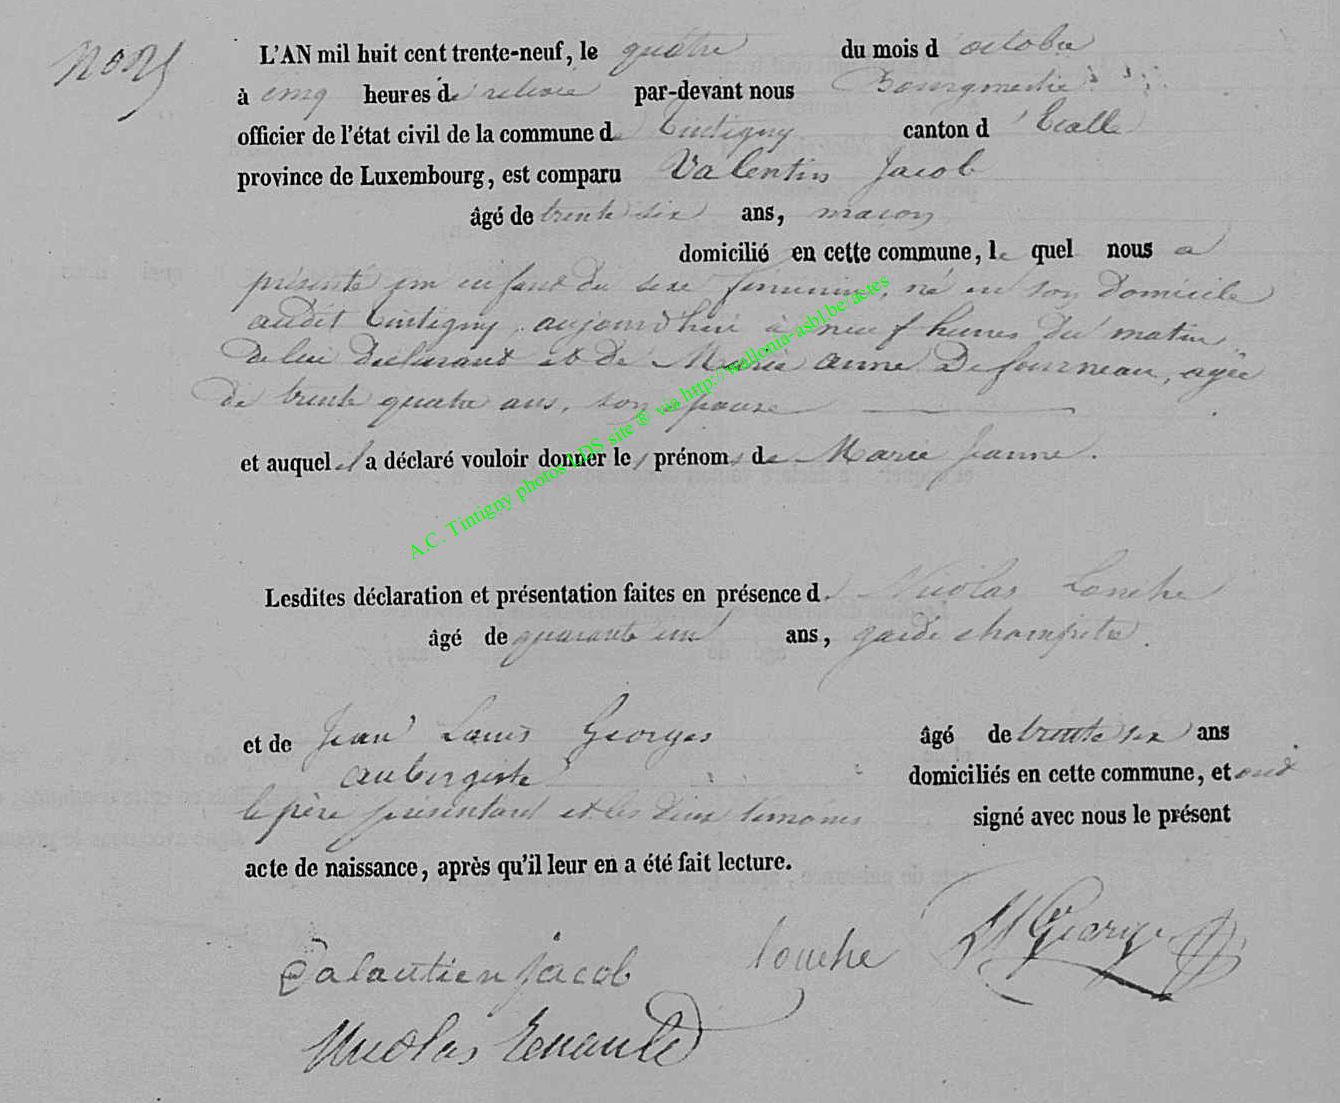 L'AN mil huit cent trente-neuf, le quatre du mois d octobre
à cinq heures de relevée par-devant nous Bourgmestre
officier de l'état civil de la commune de Tintigny canton d' Etalle
province de Luxembourg, est comparu Valentin Jacob
âgé de trente six ans, maçon
domicilié en cette commune, le quel nous a
présenté un enfant du sexe féminin, né en son domicile
audit Tintigny, aujourd'hui à neuf heures du matin
de lui déclarant et de Marie anne Defourneau, agée
de trente quatre ans, son épouse
et auquel il a déclaré vouloir donner les prénoms de Marie Jeanne.
A.C. Tintigny photos LDS site ® via http://wallonia-asbl be/actes
Lesdites déclaration et présentation faites en présence d. Nicolas Louche
âgé de quarante un ans, garde champêtre.
et de Jean Louis Georges âgé de trente six ans
aubergiste domiciliés en cette commune, et ont
le père présentant et les deux témoins signé avec nous le présent
acte de naissance, après qu'il leur en a été fait lecture.
Valantien jacob louche Georges
Nicolas